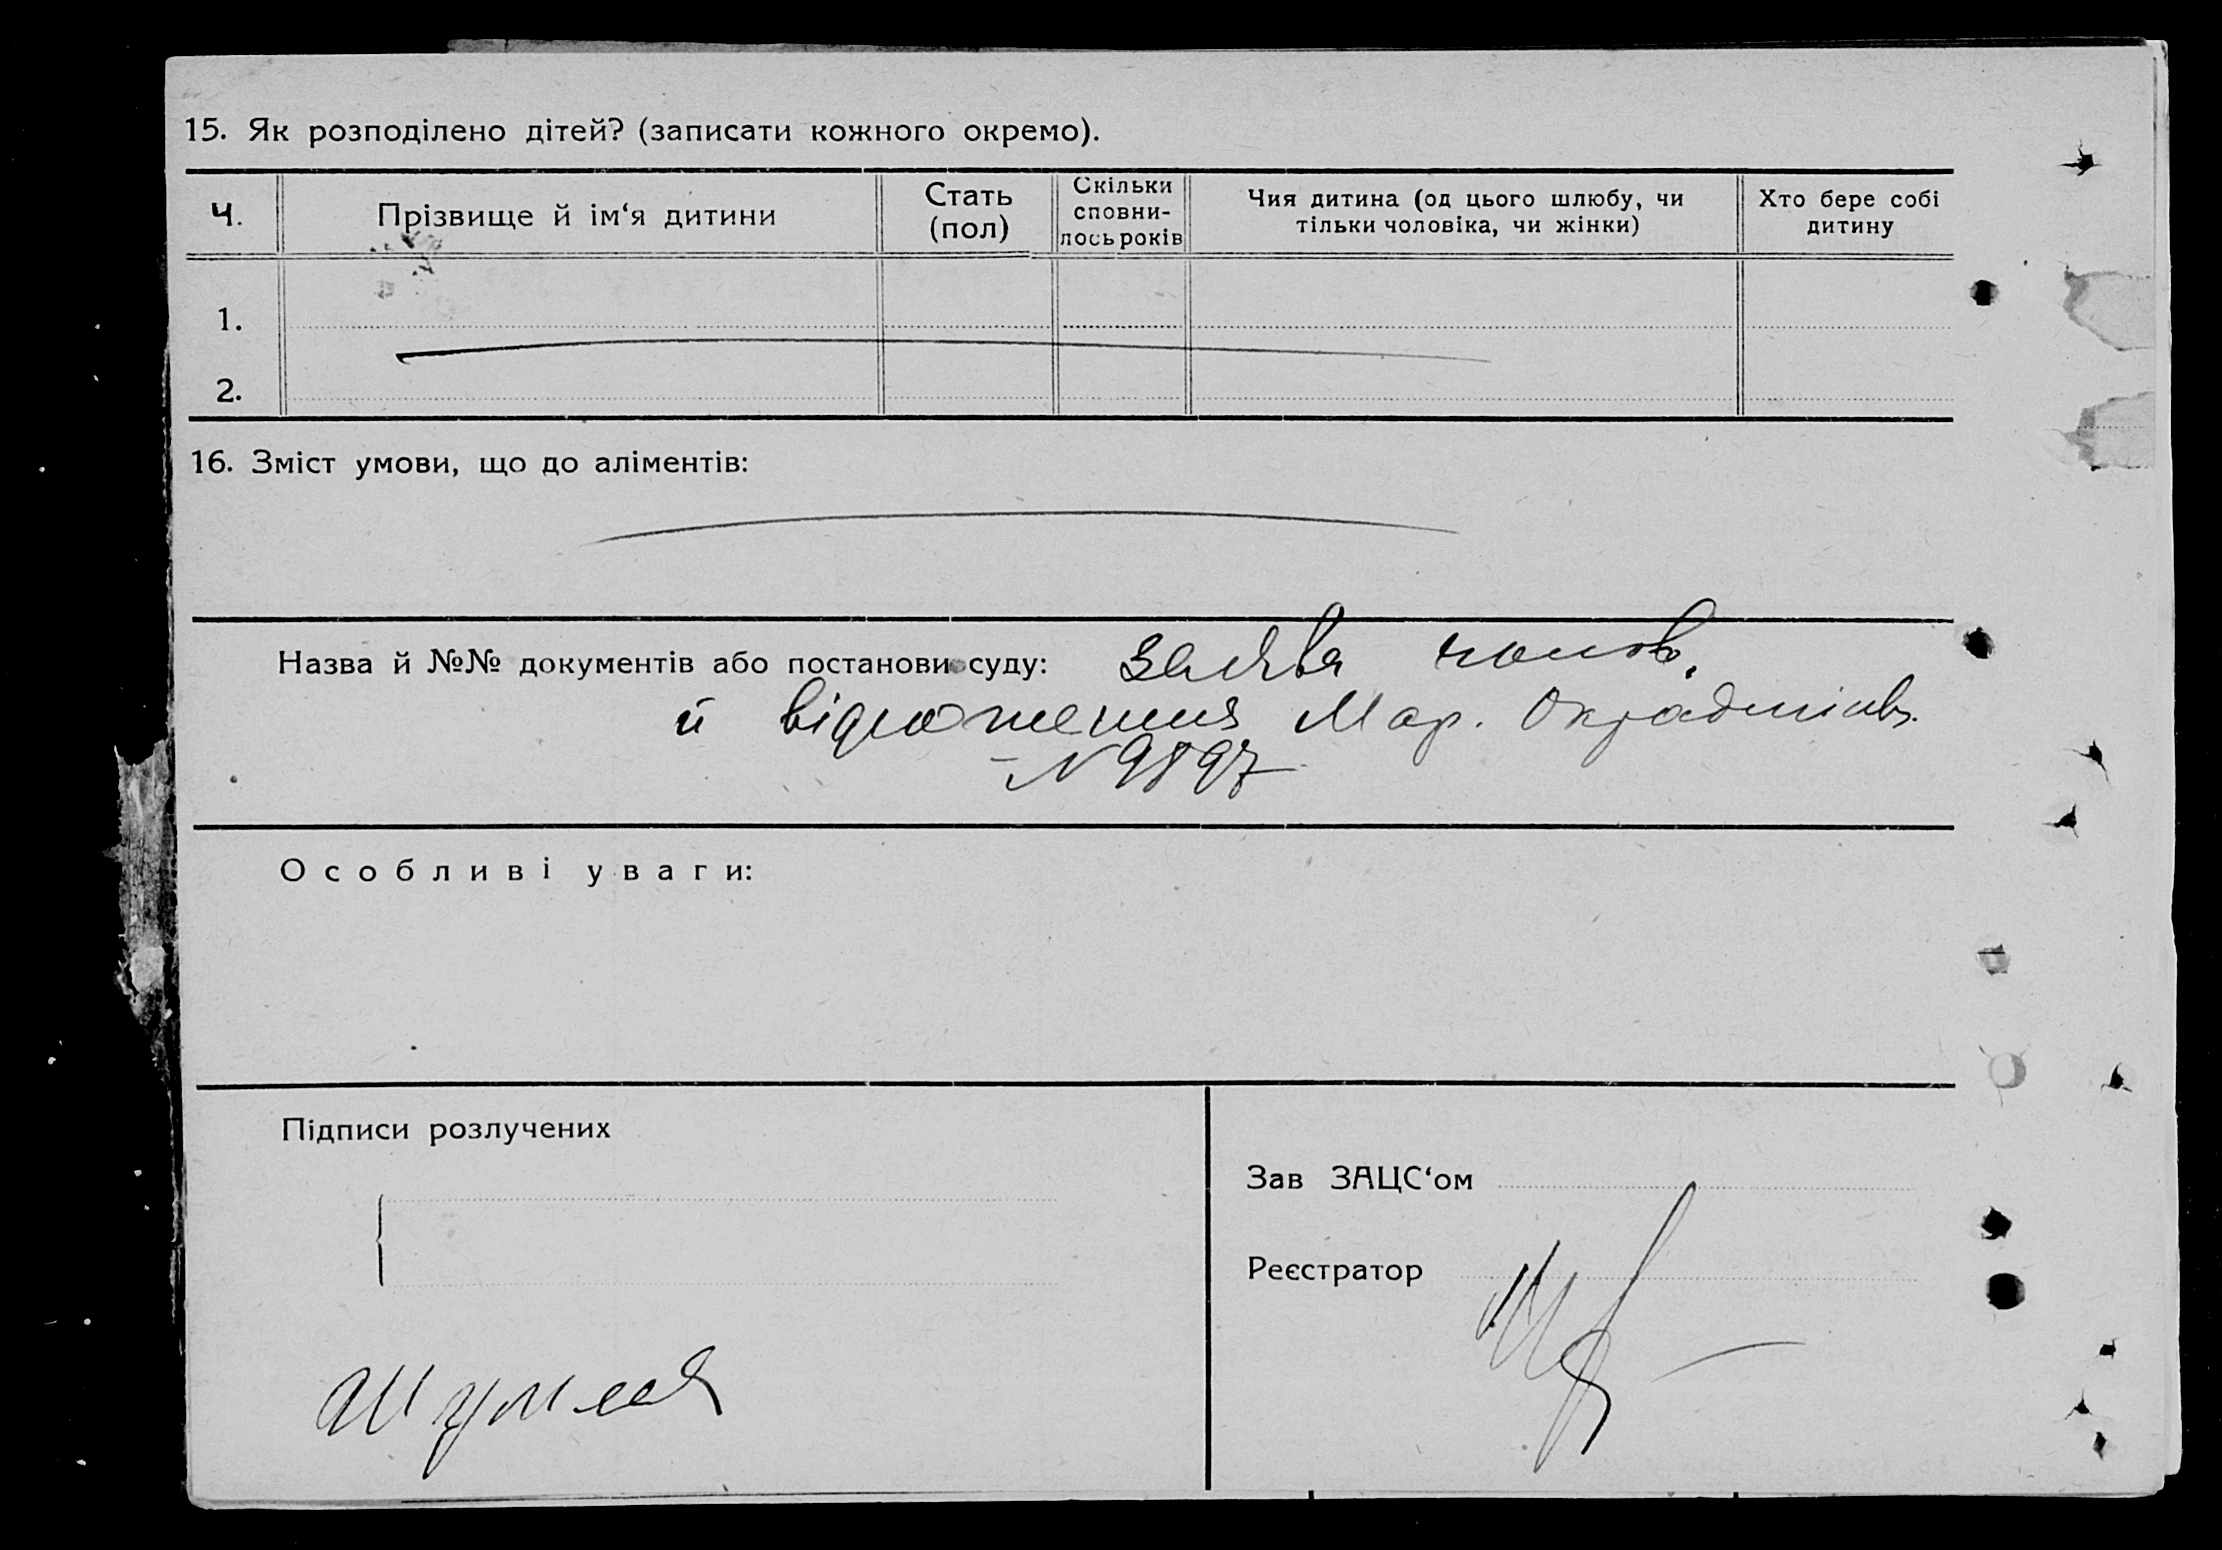 15. Як розподілено дітей? (записати кожного окремо).
Ч. Прізвище й ім‘я дитини Стать (пол) Скільки сповни-лось років Чия дитина (од цього шлюбу, чи тільки чоловіка, чи жінки) Хто бере собі дитину
1.
2.
16. Зміст умови, що до аліментів:
Назва й №№ документів або постанови суду: заява чолов.
й відношення Мар. Окрадмінв.
№ 9897
Особливі уваги:
Підписи розлучених
Зав ЗАЦС‘ом
Реєстратор